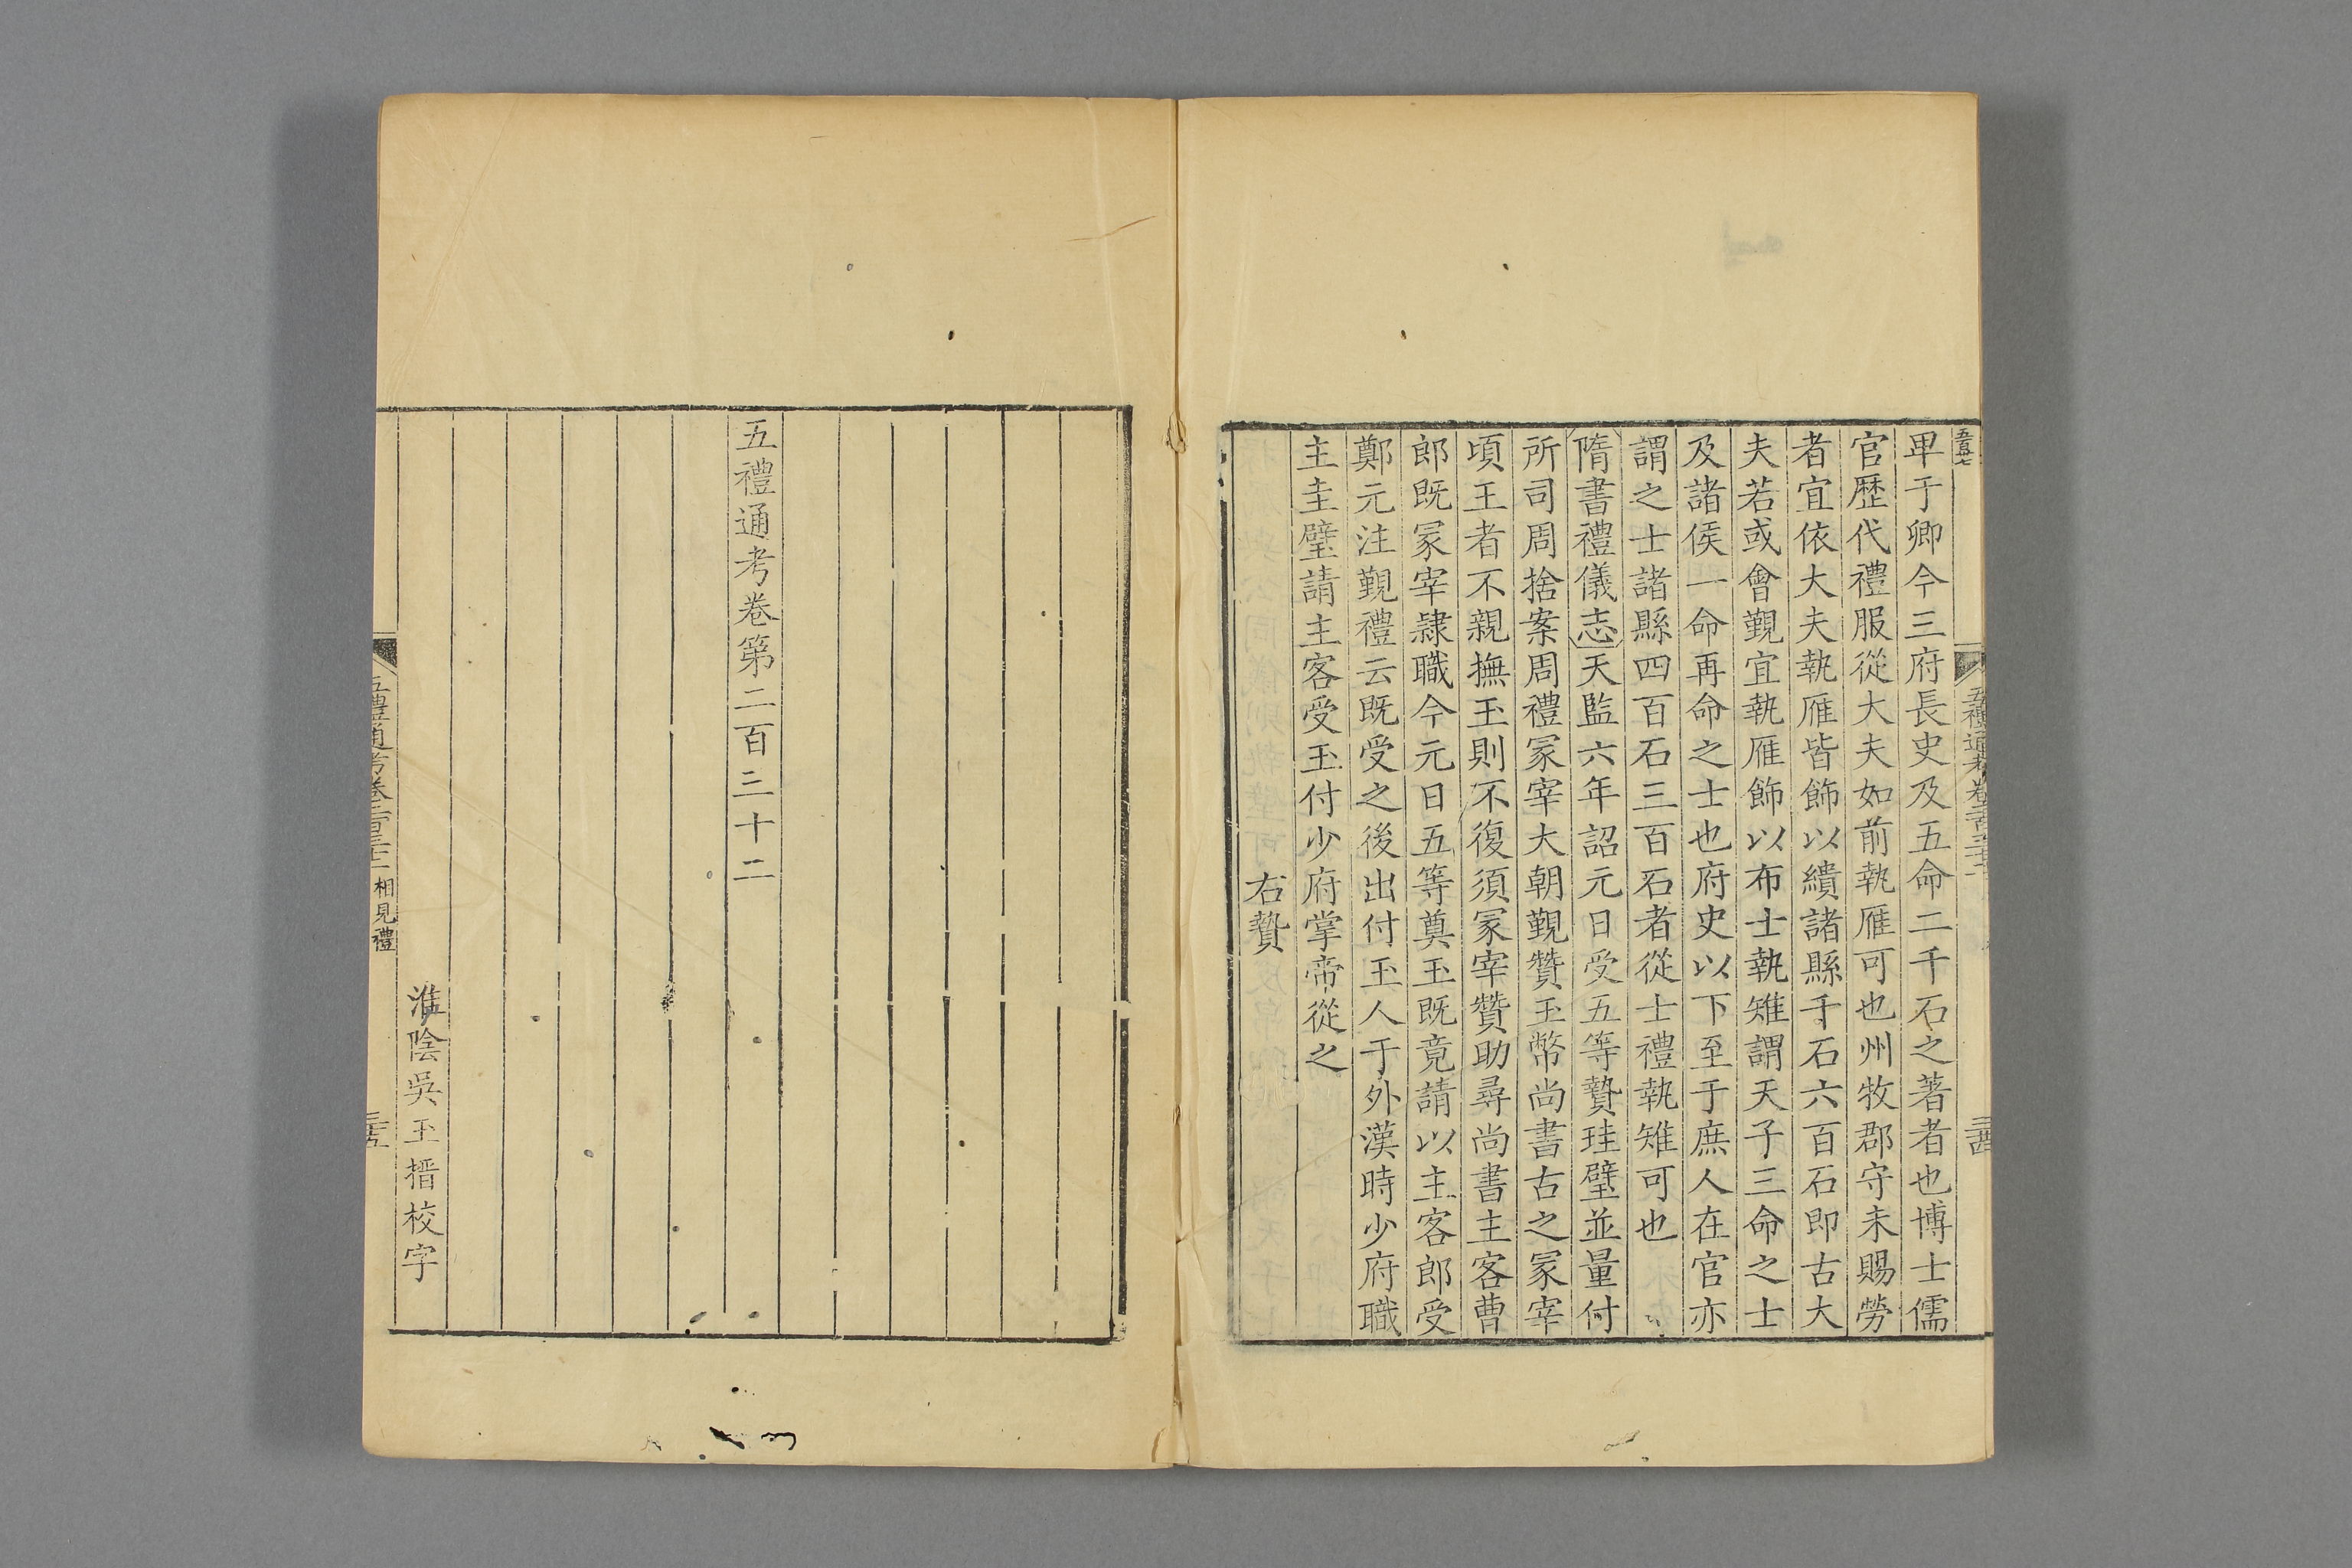 卑于卿今三府長史及五命二千石之著者也博士儒
官歴代禮服從大夫如前執雁可也州牧郡守未賜勞
者宜依大夫執雁皆飾以繢諸縣千石六百石即古大
夫若或會覲宜執雁飾以布士執雉謂天子三命之士
及諸侯一命再命之士也府史以下至于庶人在官亦
謂之士諸縣四百石三百石者從士禮執雉可也
隋書禮儀志天監六年詔元日受五等贄珪璧並量付
所司周捨案周禮冢宰大朝覲贊玉幣尚書古之冢宰
頃王者不親撫玉則不復須冢宰贊助尋尚書主客曹
郎既冢宰隸職今元日五等奠玉既竟請以主客郎受
鄭元注覲禮云既受之後出付玉人于外漢時少府職
主圭璧請主客受玉付少府掌帝從之
右贄
五禮通考卷第二百三十二
淮陰吳玉搢校字
五禮通考卷二百三十二 相見禮
三十五